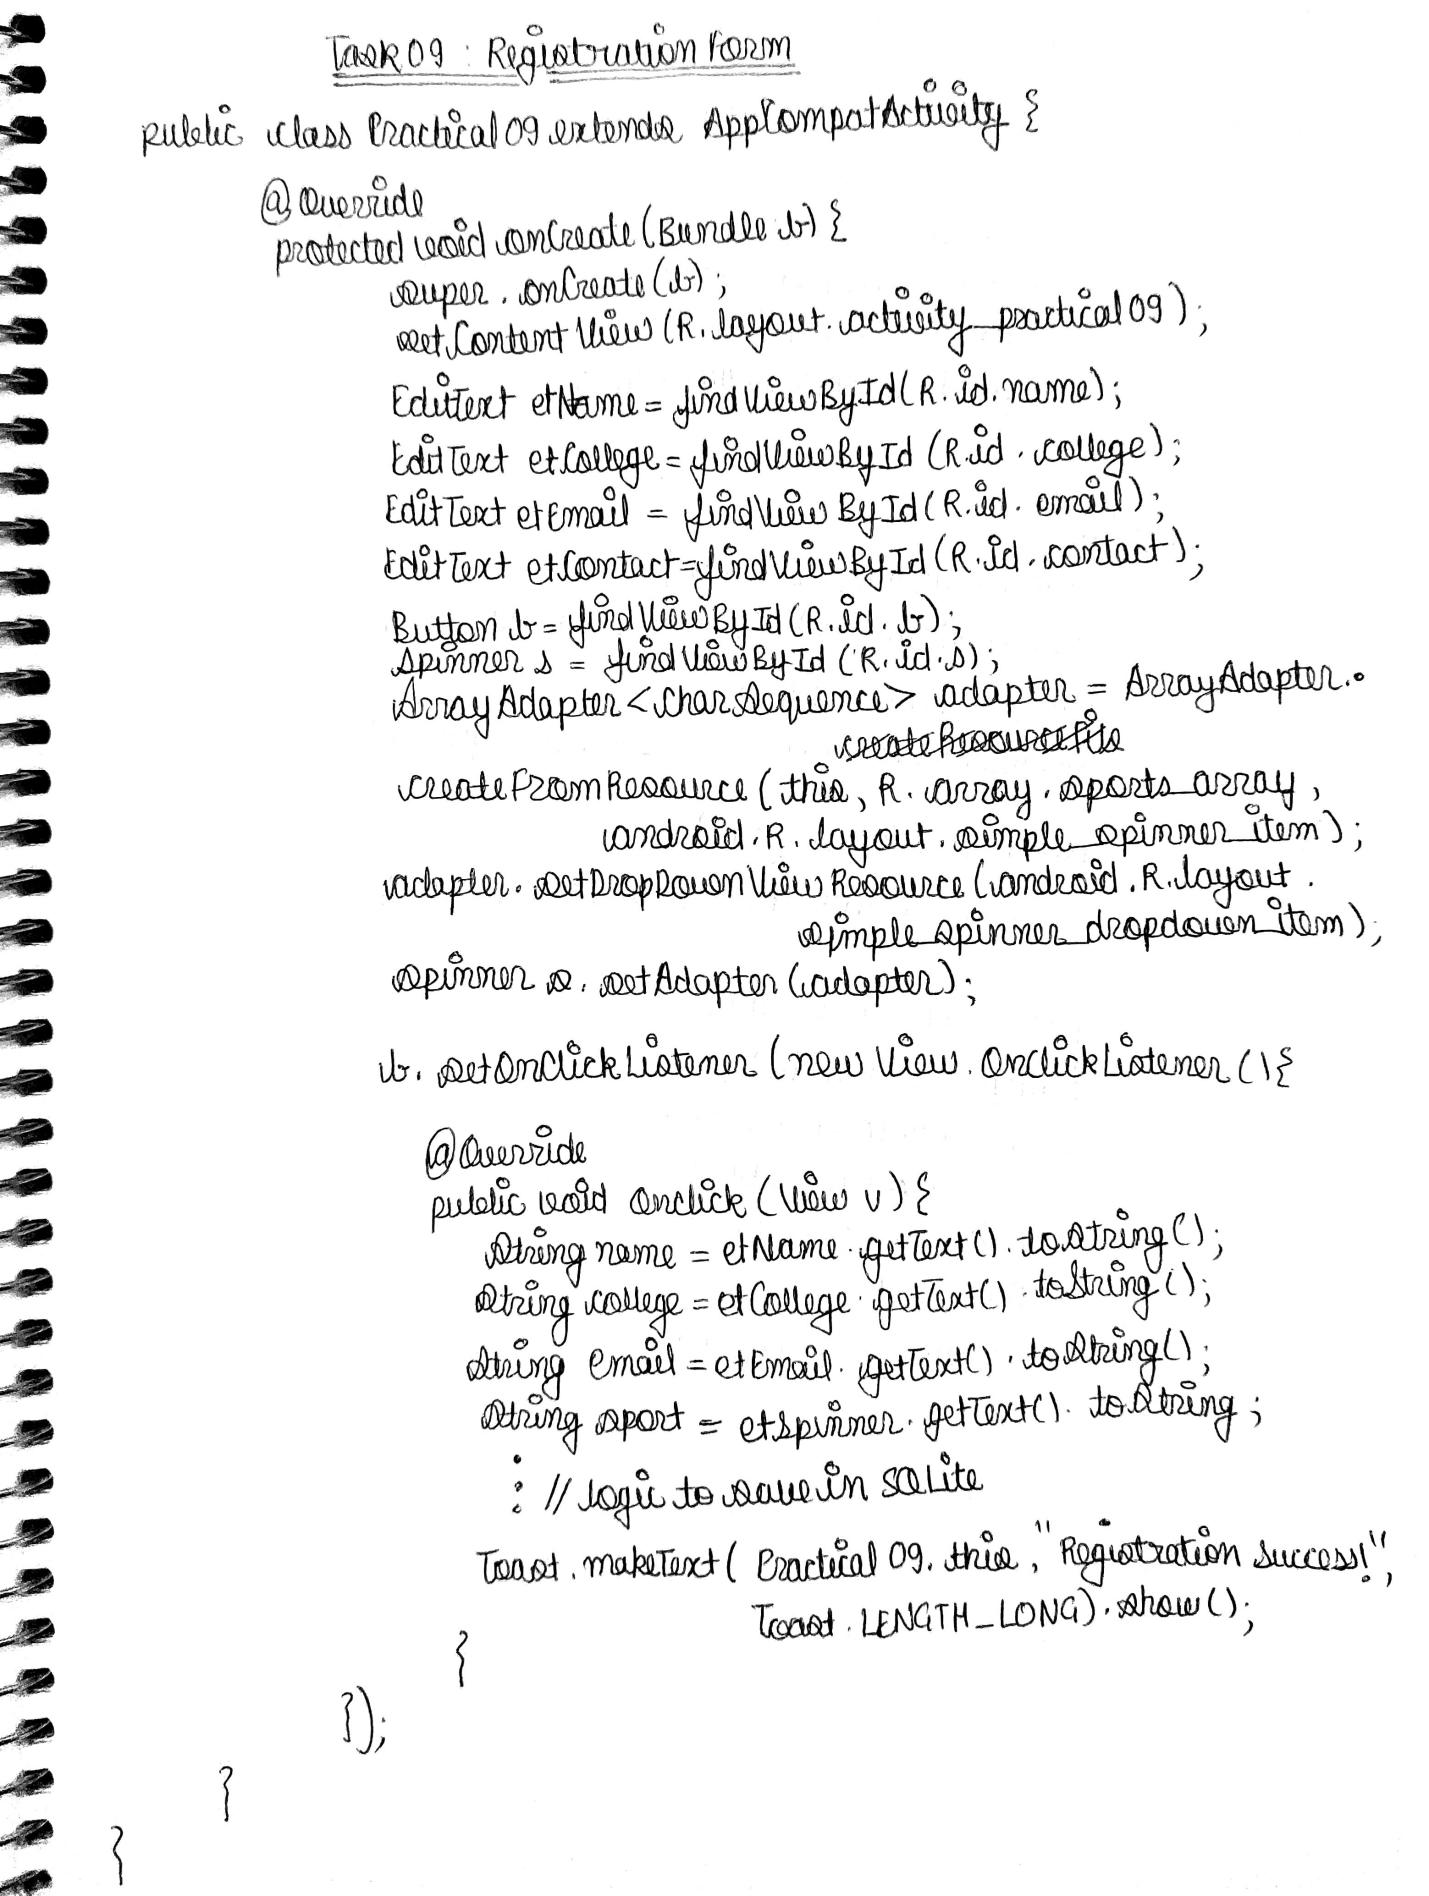 Task 09 : Registration Form
public class Practical 09 extends AppCompatActivity {
@Override
protected void onCreate (Bundle b) {
super. onCreate (b);
set Content View (R. layout. activity_practical 09);
EditText etName = findViewById (R. id. name);
EditText etCollege = findViewById (R.id. college);
EditText etEmail = findViewById (R.id. email);
EditText etContact = findViewById (R. id. contact);
Button b = findViewById (R. id. b);
Spinner s = findViewById (R. id. s);
ArrayAdapter <CharSequence> adapter = ArrayAdapter.
createFromResource (this, R. array. sports_array,
android. R. layout. simple_spinner_item);
adapter. setDropDownViewResource (android. R. layout.
simple_spinner_dropdown_item);
spinner s. setAdapter (adapter);
b. setOnClickListener (new View. OnClickListener () {
@Override
public void onclick (View v) {
String name = etName. getText(). toString();
String college = etCollege. getText(). toString();
String email = etEmail. getText(). toString();
String sport = etspinner. getText(). toString;
: // logic to save in SQLite
Toast. makeText( Practical 09. this, "Registration Success!",
Toast. LENGTH_LONG). show();
}
});
}
}